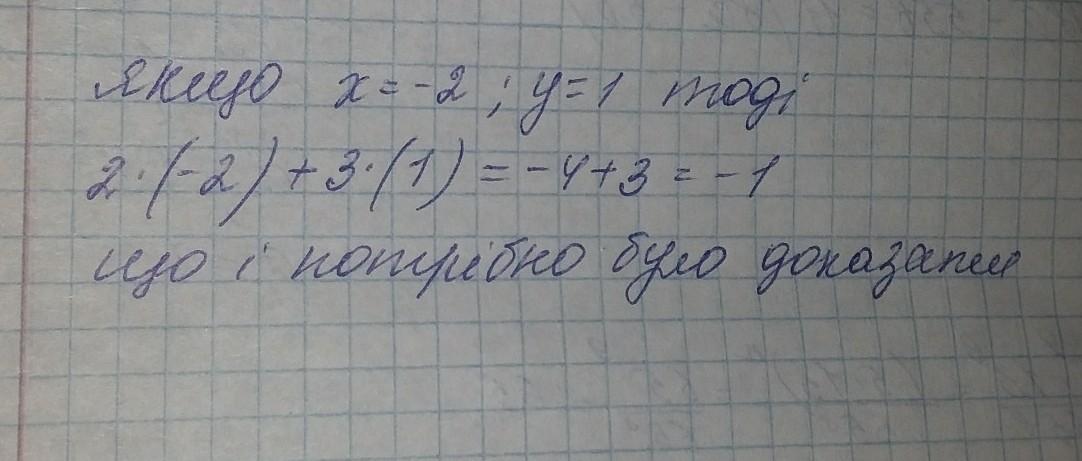 якщо x=-2; y=1 тоді
2·(-2)+3·(1)=-4+3=-1
що і потрібно було доказати